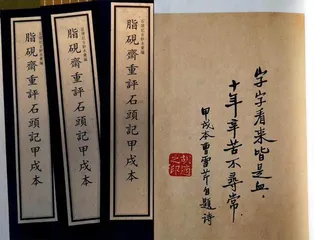 脂硯齋重評石頭記甲戌本
脂硯齋重評石頭記甲戌本
脂硯齋重評石頭記甲戌本
字字看來皆是血
十年辛苦不尋常
甲戌本曹雪芹自題詩
胡適之印